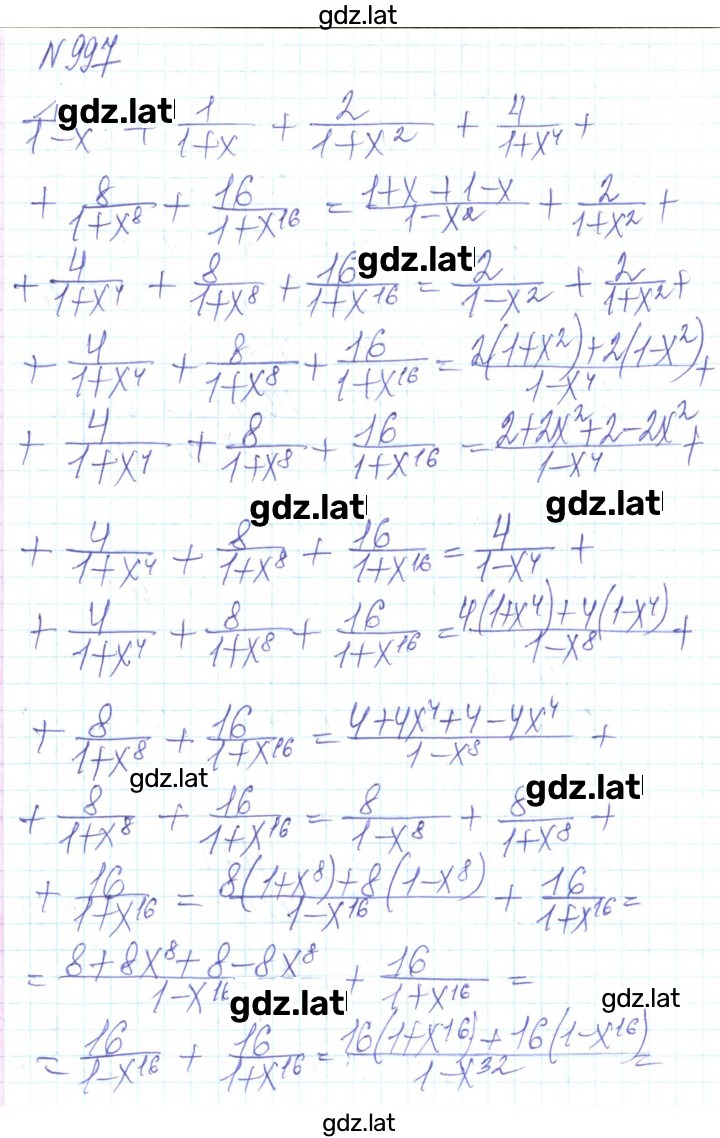 gdz.lat
N 997
1/(1-x) + 1/(1+x) + 2/(1+x²) + 4/(1+x⁴) + gdz.lat
+ 8/(1+x⁸) + 16/(1+x¹⁶) = (1+x+1-x)/(1-x²) + 2/(1+x²) +
+ 4/(1+x⁴) + 8/(1+x⁸) + 16/(1+x¹⁶) = 2/(1-x²) + 2/(1+x²) + gdz.lat
+ 4/(1+x⁴) + 8/(1+x⁸) + 16/(1+x¹⁶) = (2(1+x²)+2(1-x²))/(1-x⁴) +
+ 4/(1+x⁴) + 8/(1+x⁸) + 16/(1+x¹⁶) = (2+2x²+2-2x²)/(1-x⁴) +
gdz.lat gdz.lat
+ 4/(1+x⁴) + 8/(1+x⁸) + 16/(1+x¹⁶) = 4/(1-x⁴) +
+ 4/(1+x⁴) + 8/(1+x⁸) + 16/(1+x¹⁶) = (4(1+x⁴)+4(1-x⁴))/(1-x⁸) +
+ 8/(1+x⁸) + 16/(1+x¹⁶) = (4+4x⁴+4-4x⁴)/(1-x⁸) +
gdz.lat gdz.lat
+ 8/(1+x⁸) + 16/(1+x¹⁶) = 8/(1-x⁸) + 8/(1+x⁸) +
+ 16/(1+x¹⁶) = (8(1+x⁸)+8(1-x⁸))/(1-x¹⁶) + 16/(1+x¹⁶) =
= (8+8x⁸+8-8x⁸)/(1-x¹⁶) + 16/(1+x¹⁶) =
gdz.lat gdz.lat
= 16/(1-x¹⁶) + 16/(1+x¹⁶) = (16(1+x¹⁶)+16(1-x¹⁶))/(1-x³²) =
gdz.lat